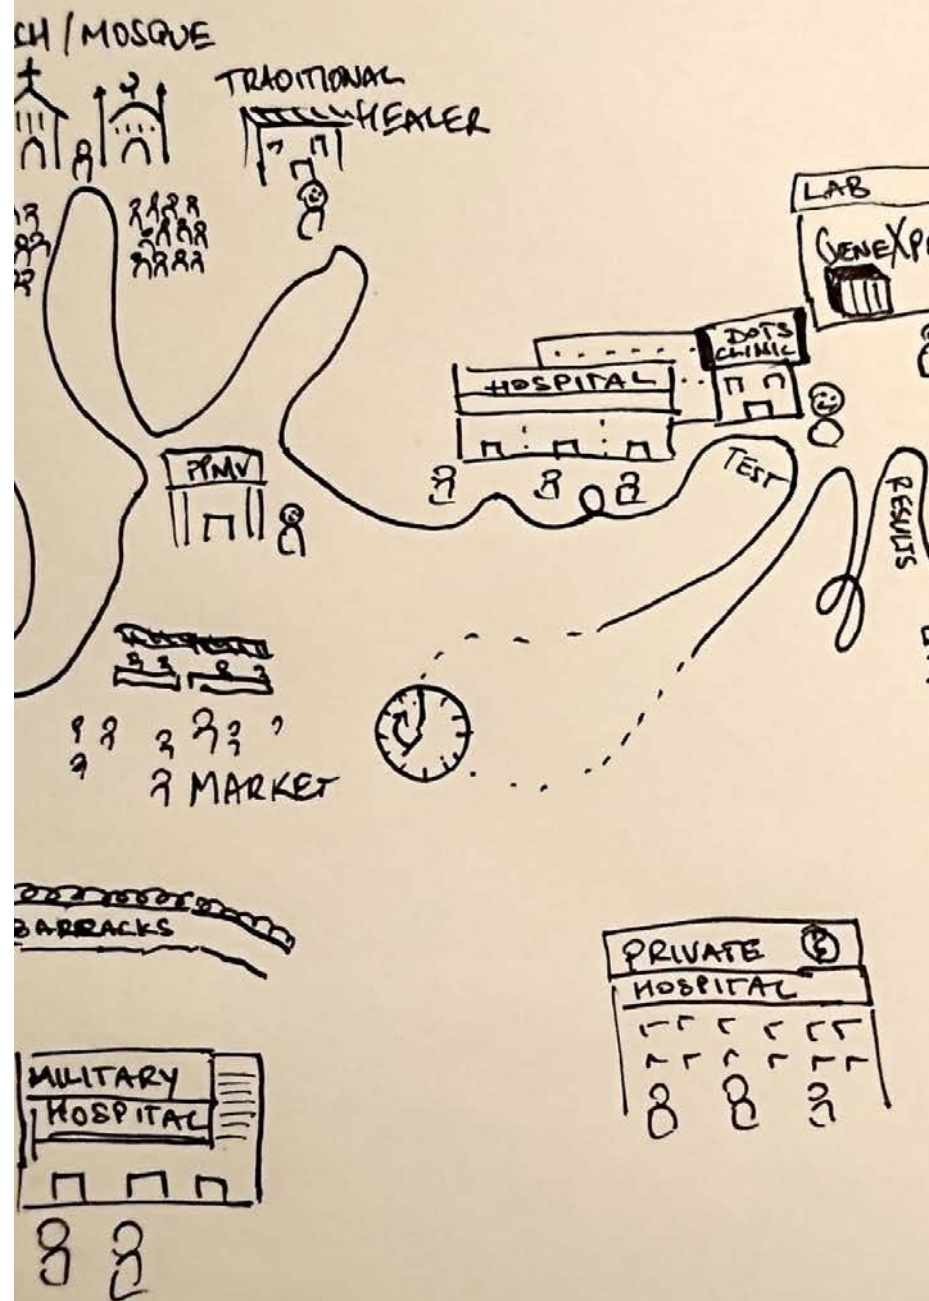 CH / MOSQUE
TRADITIONAL
HEALER
LAB
GENEXPE
DOTS
CLINIC
HOSPITAL
TEST
RESULTS
PPMV
MARKET
BARRACKS
PRIVATE
HOSPITAL
MILITARY
HOSPITAL